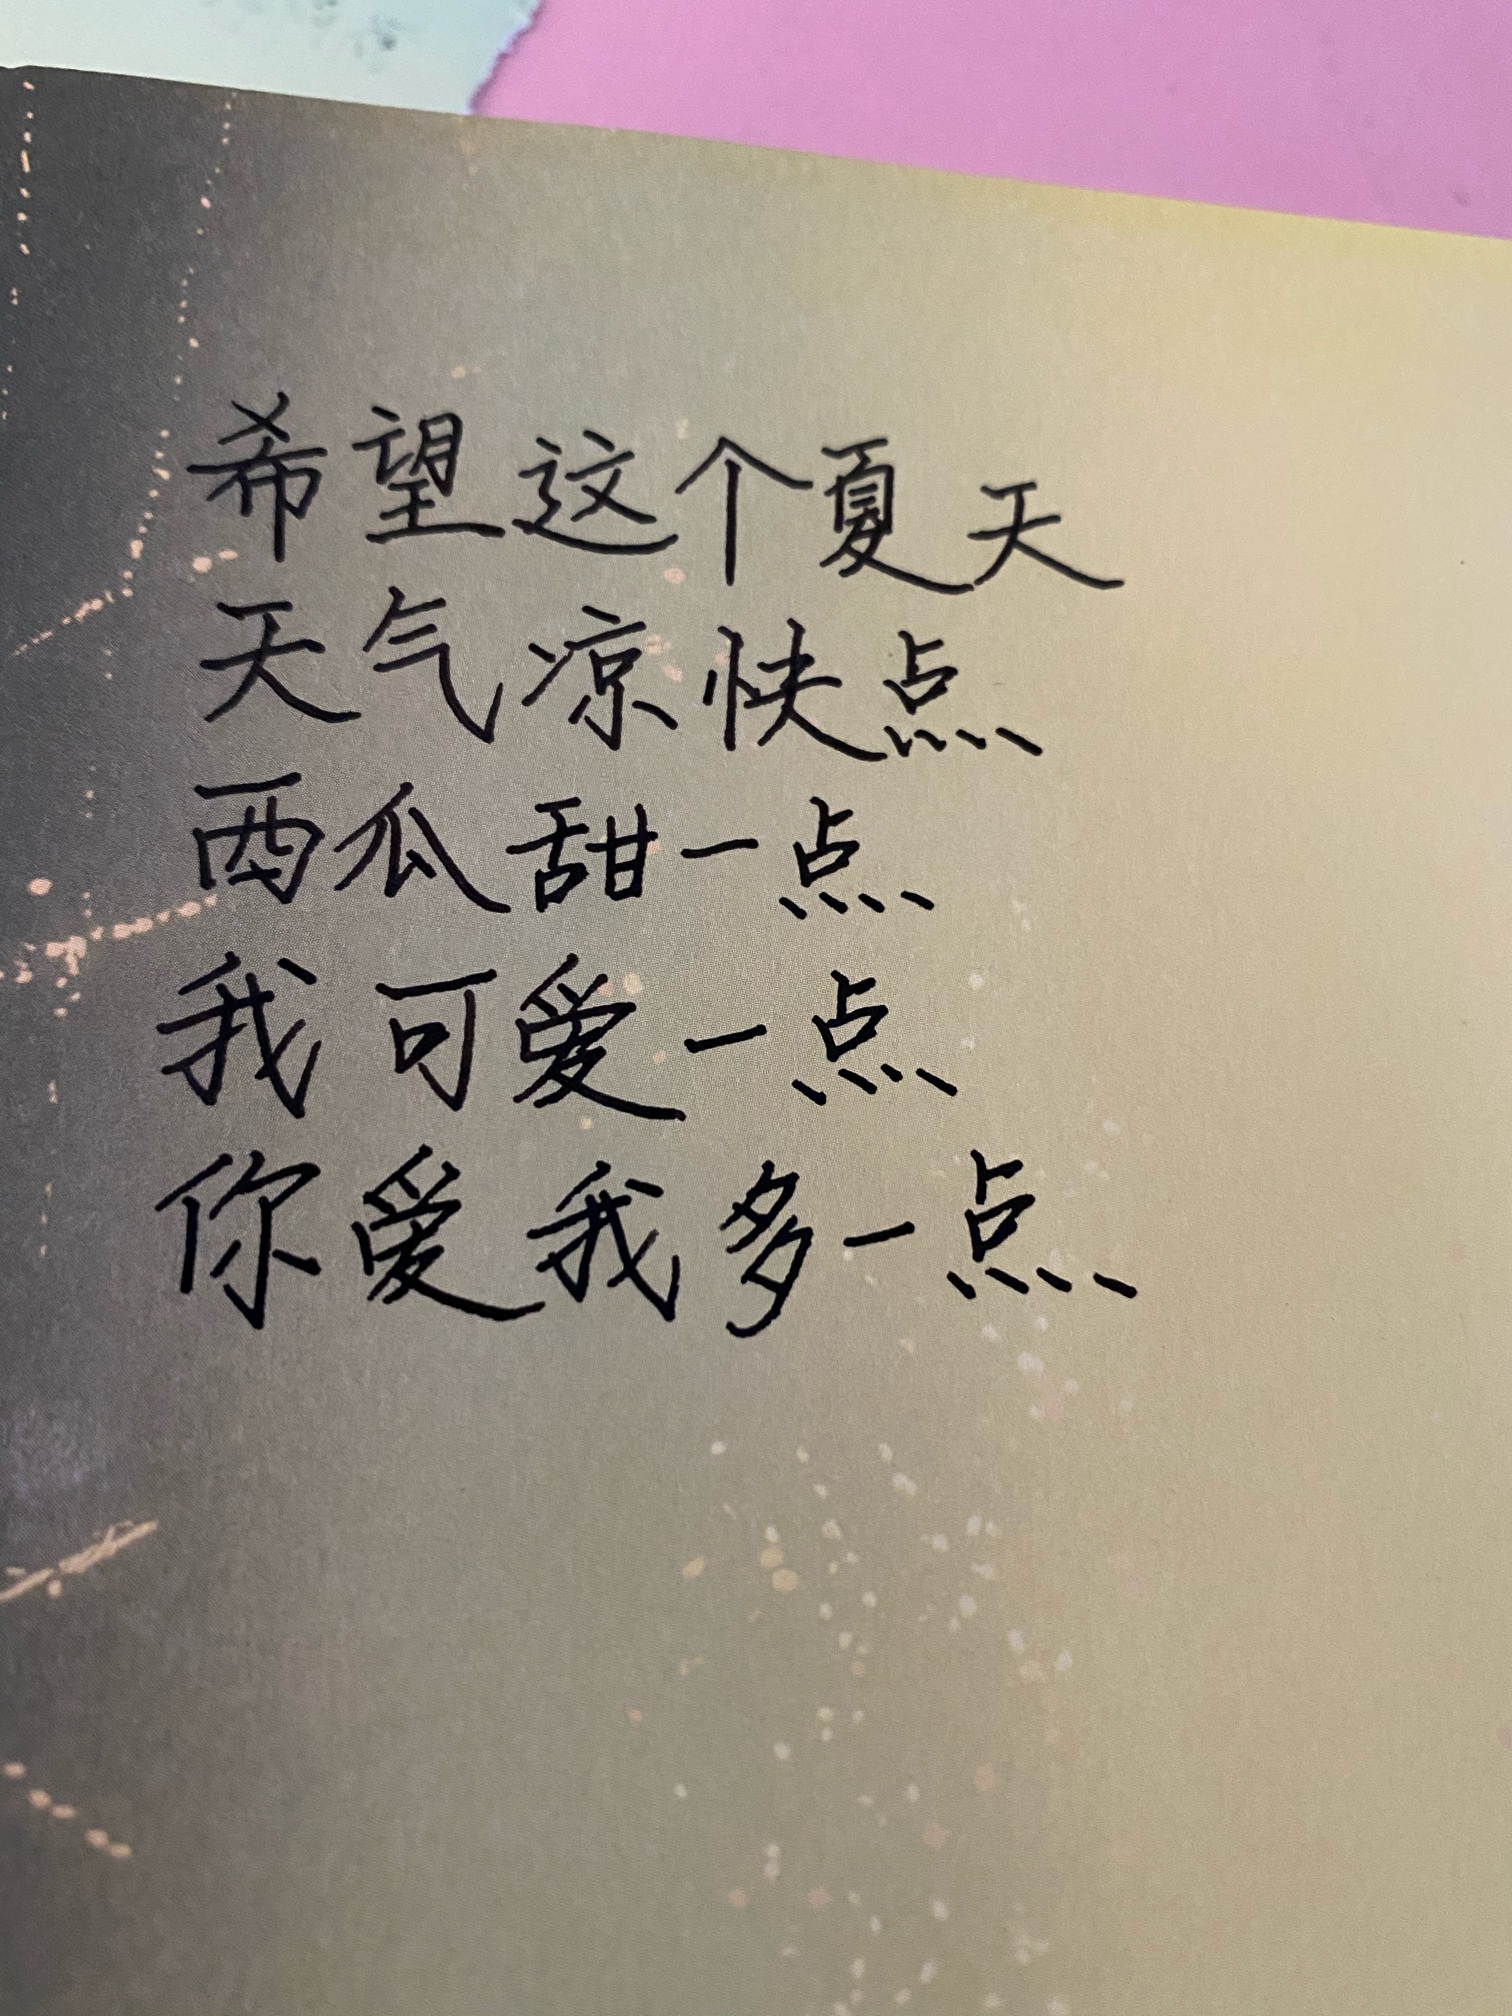 希望这个夏天
天气凉快点
西瓜甜一点
我可爱一点
你爱我多一点